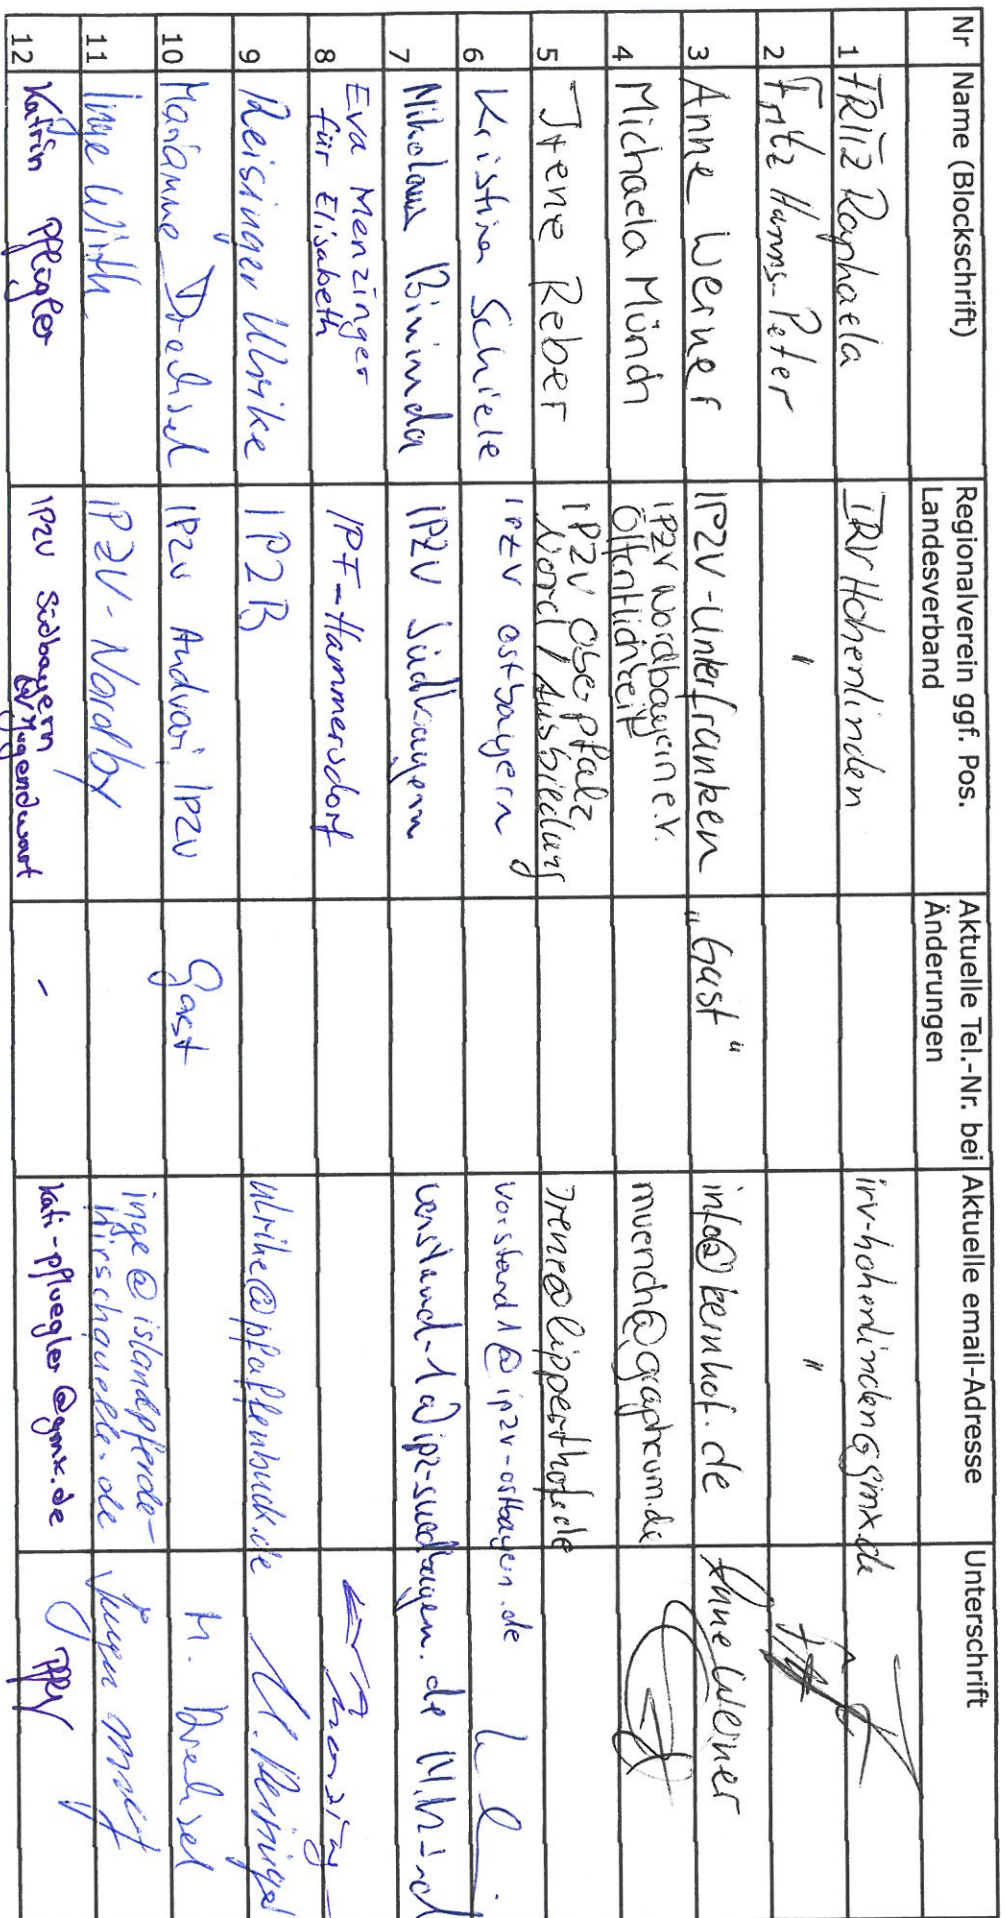 Nr Name (Blockschrift) Regionalverein ggf. Pos. Landesverband Aktuelle Tel.-Nr. bei Änderungen Aktuelle email-Adresse Unterschrift
1 FRITZ Raphaela IRV Hohenlinden irv-hohenlinden@gmx.de
2 Fritz Hanns-Peter " "
3 Anne Werner IPZV-Unterfranken "Gast" info@kernhof.de Anne Werner
4 Michaela Münch IPZV Nordbayern e.V. Öffentlichkeit muench@grapheum.de
5 Irene Reber IPZV Oberpfalz Nord / Ausbiedung Irene@lipperthof.de
6 Kristina Schiele IPZV Ostbayern vorstand1@ipzv-ostbayern.de
7 Nikolaus IPZV Südbayern
8 Eva Menzinger für Elisabeth IPF-Hammersdorf
9 Reisinger Ulrike IPZB ulrike@pfaffenbuck.de U. Reisinger
10 Marianne Drechsel IPZV Andvari IPZV Gast M. Drechsel
11 Inge Wirth IPZV-Nordby inge@islandpferde-hirschquelle.de
12 Katrin Pflügler IPZV Südbayern Jugendwart - kati-pfluegler@gmx.de